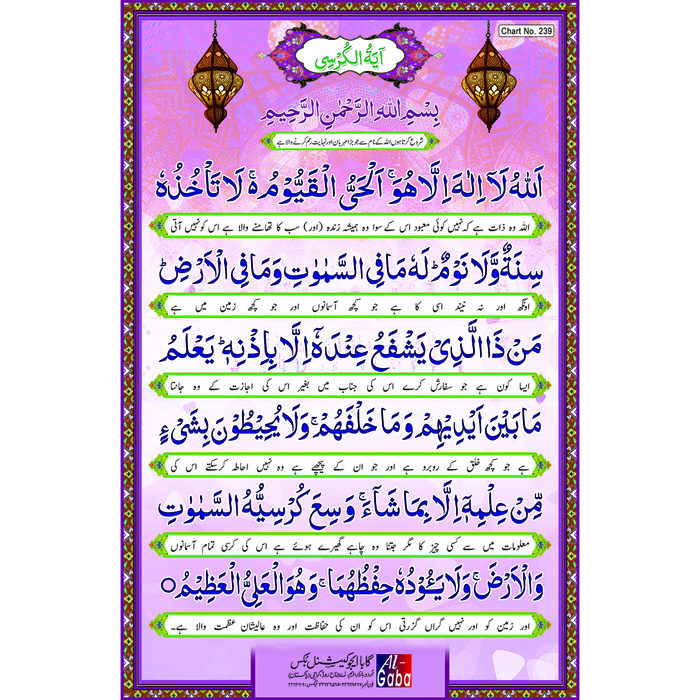 Chart No. 239
آیۃ الکرسی
بِسْمِ اللهِ الرَّحْمٰنِ الرَّحِیْمِ
شروع کرتا ہوں اللہ کے نام سے جو بڑا مہربان اور نہایت رحم کرنے والا ہے
اَللهُ لَآ اِلٰهَ اِلَّا هُوَۚ اَلْحَیُّ الْقَیُّوْمُ ۚ لَا تَاْخُذُهٗ
اللہ وہ ذات ہے کہ نہیں کوئی معبود اس کے سوا وہ ہمیشہ زندہ (اور) سب کا تھامنے والا ہے اس کو نہیں آتی
سِنَةٌ وَّلَا نَوْمٌؕ لَهٗ مَا فِی السَّمٰوٰتِ وَمَا فِی الْاَرْضِؕ
اونگھ اور نہ نیند اسی کا ہے جو کچھ آسمانوں اور جو کچھ زمین میں ہے
مَنْ ذَا الَّذِیْ یَشْفَعُ عِنْدَهٗٓ اِلَّا بِاِذْنِهٖؕ یَعْلَمُ
ایسا کون ہے جو سفارش کرے اس کی جناب میں بغیر اس کی اجازت کے وہ جانتا
مَا بَیْنَ اَیْدِیْهِمْ وَمَا خَلْفَهُمْۚ وَلَا یُحِیْطُوْنَ بِشَیْءٍ
ہے جو کچھ خلق کے روبرو ہے اور جو ان کے پیچھے ہے وہ نہیں احاطہ کرسکتے اس کی
مِّنْ عِلْمِهٖٓ اِلَّا بِمَا شَآءَۚ وَسِعَ كُرْسِیُّهُ السَّمٰوٰتِ
معلومات میں سے کسی چیز کا مگر جتنا وہ چاہے گھیرے ہوئے ہے اس کی کرسی تمام آسمانوں
وَالْاَرْضَۚ وَلَا یَـُٔوْدُهٗ حِفْظُهُمَاۚ وَهُوَ الْعَلِیُّ الْعَظِیْمُ ○
اور زمین کو اور نہیں گراں گزرتی اس کو ان کی حفاظت اور وہ عالیشان عظمت والا ہے۔
گابا ایجوکیشنل بکس
AL-Gaba